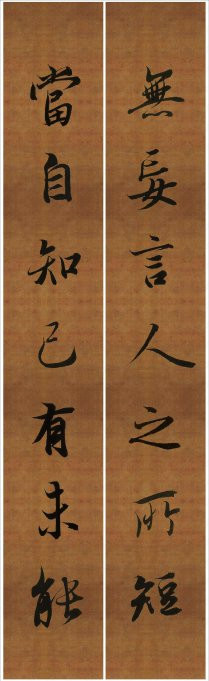 無妄言人之所短
當自知己有未能